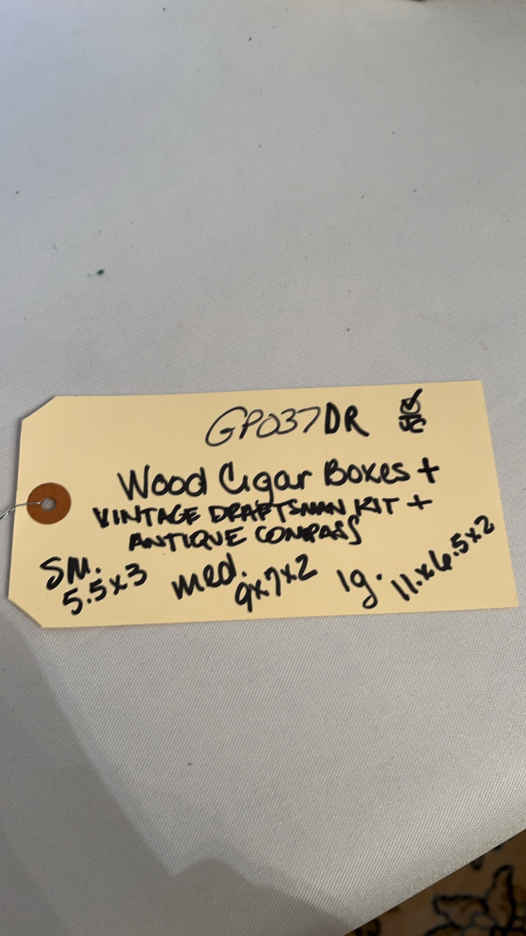 GP037DR
Wood Cigar Boxes +
VINTAGE DRAFTSMAN KIT +
ANTIQUE COMPASS
SM. med. lg.
5.5x3 9x7x2 11.x6.5x2